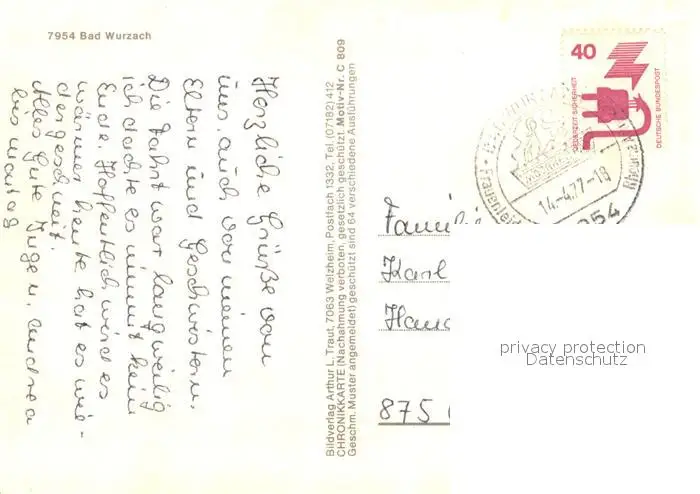 7954 Bad Wurzach
Herzliche Grüße von
uns, auch von meinen
Eltern und Geschwistern.
Die Fahrt war langweilig
ich dachte es nimmt kein
Ende. Hoffentlich wird es
wärmer heute hat es wie-
der geschneit.
Alles Gute Inge u. Andrea
bis montag
Bildverlag Arthur L. Traut, 7063 Welzheim, Postfach 1332, Tel. (07182) 412
CHRONIKKARTE (Nachahmung verboten, gesetzlich geschützt. Motiv-Nr. C 809
Geschm. Muster angemeldet) geschützt sind 64 verschiedene Ausführungen
40
JEDERZEIT SICHERHEIT
DEUTSCHE BUNDESPOST
14.-4.77-18
Rheuma
7954
Famili
Karl
875
privacy protection
Datenschutz